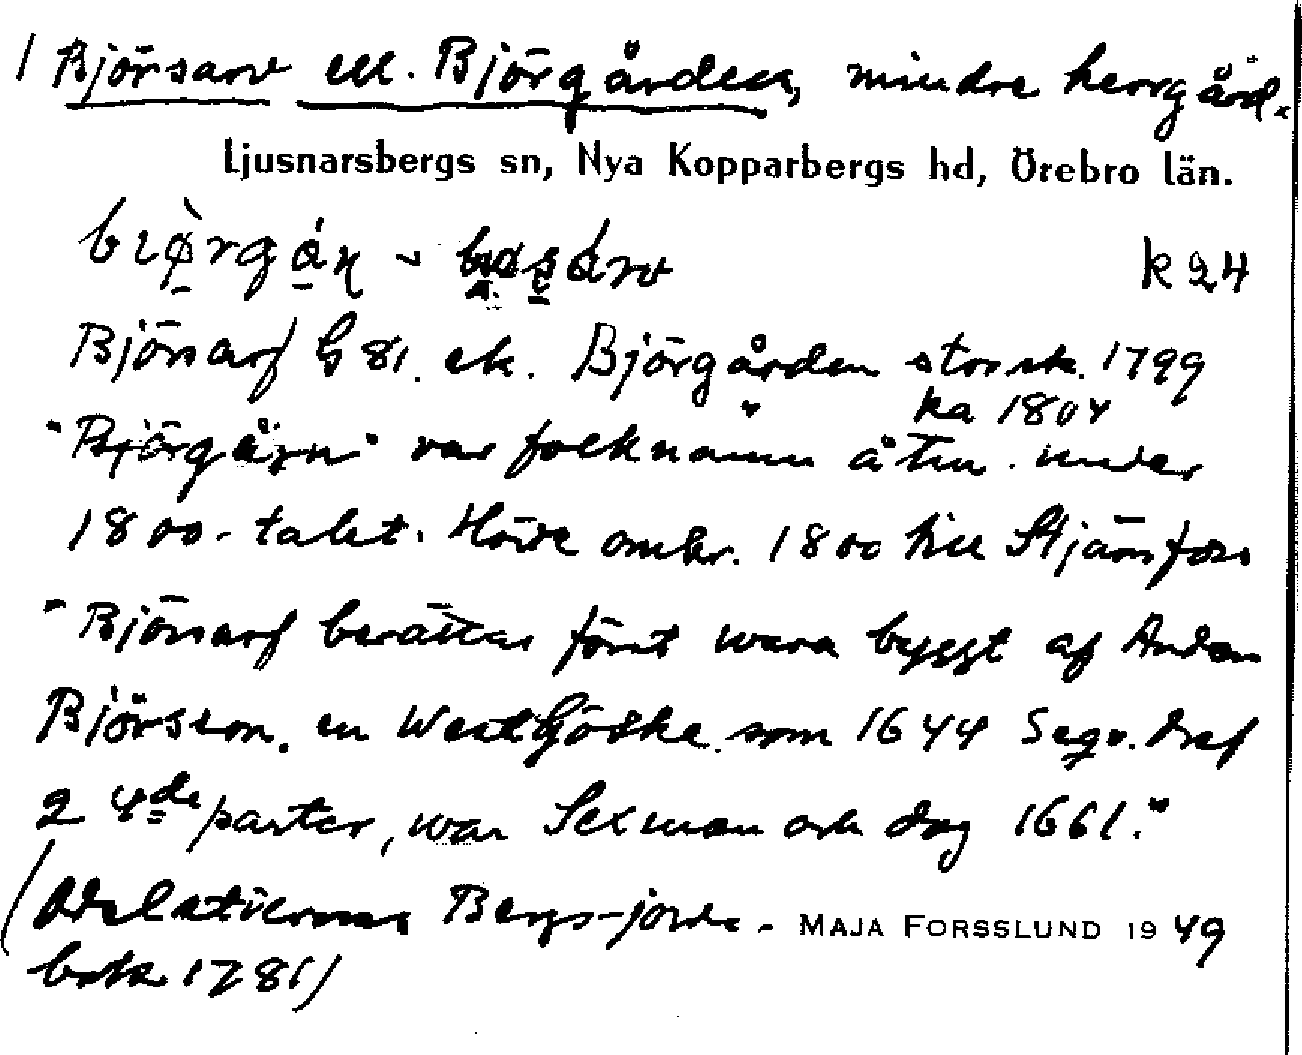 / Björsarv ell. Björgården, mindre herrgård.
Ljusnarsbergs sn, Nya Kopparbergs hd, Örebro län.
k 24
Björsarf G 81. ek. Björgården storsk. 1799
ka 1804
"Björgårn" var folknamn åtm. under
1800-talet. Hörde omkr. 1800 till Stjärnfors
"Björsarf berättas först wara byggt af Anders
Björsson, en WestGöthe som 1644 Segr. dref
2 4de parter, war Sexman och dog 1661."
Bergs-jorde-
bok 1781)
MAJA FORSSLUND 1949